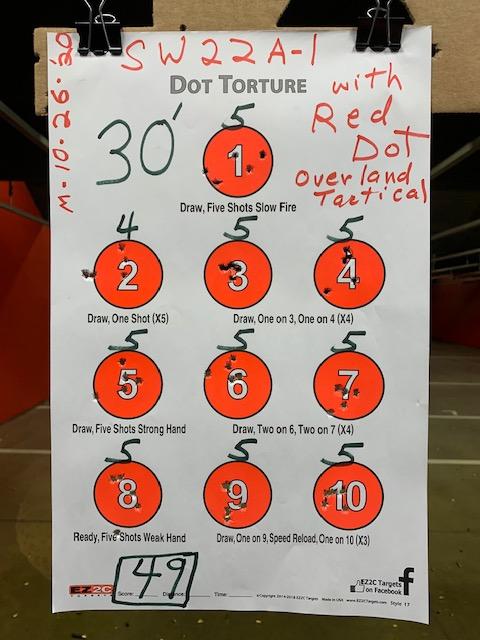 SW22A-1
M-10-26-20
DOT TORTURE
with
Red
Dot
Overland
Tactical
30'
5
1
Draw, Five Shots Slow Fire
4 5 5
2 3 4
Draw, One Shot (X5) Draw, One on 3, One on 4 (X4)
5 5 5
5 6 7
Draw, Five Shots Strong Hand Draw, Two on 6, Two on 7 (X4)
5 5 5
8 9 10
Ready, Five Shots Weak Hand Draw, One on 9, Speed Reload, One on 10 (X3)
49
EZ2C
TARGETS
Score: Distance: Time:
©Copyright 2014-2018 EZ2C Targets Made in USA www.EZ2CTargets.com Style 17
EZ2C Targets
on Facebook
f